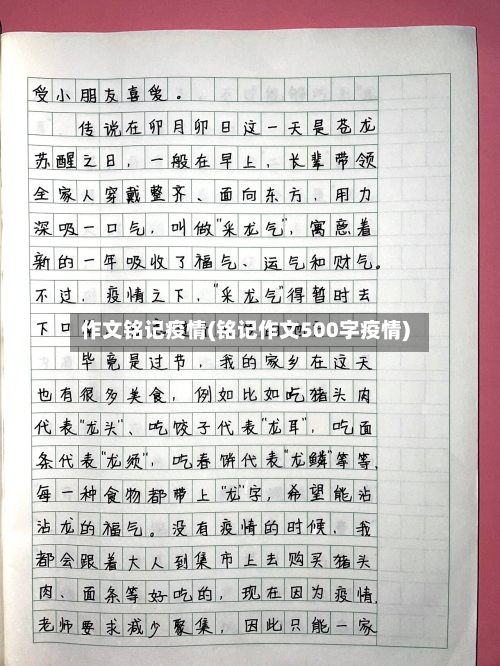 受小朋友喜爱。
传说在卯月卯日这一天是苍龙
苏醒之日，一般在早上，长辈带领
全家人穿戴整齐、面向东方，用力
深吸一口气，叫做"采龙气"，寓意着
新的一年吸收了福气、运气和财气。
不过，疫情之下，"采龙气"得暂时去
下口
作文铭记疫情(铭记作文500字疫情)
毕竟是过节，我的家乡在这天
也有很多美食，例如比如吃猪头肉
代表"龙头"、吃饺子代表"龙耳"，吃面
条代表"龙须"，吃春饼代表"龙鳞"等等，
每一种食物都带上"龙"字，希望能沾
沾龙的福气。没有疫情的时候，我
都会跟着大人到集市上去购买猪头
肉、面条等好吃的，现在因为疫情，
老师要求减少聚集，因此只能一家